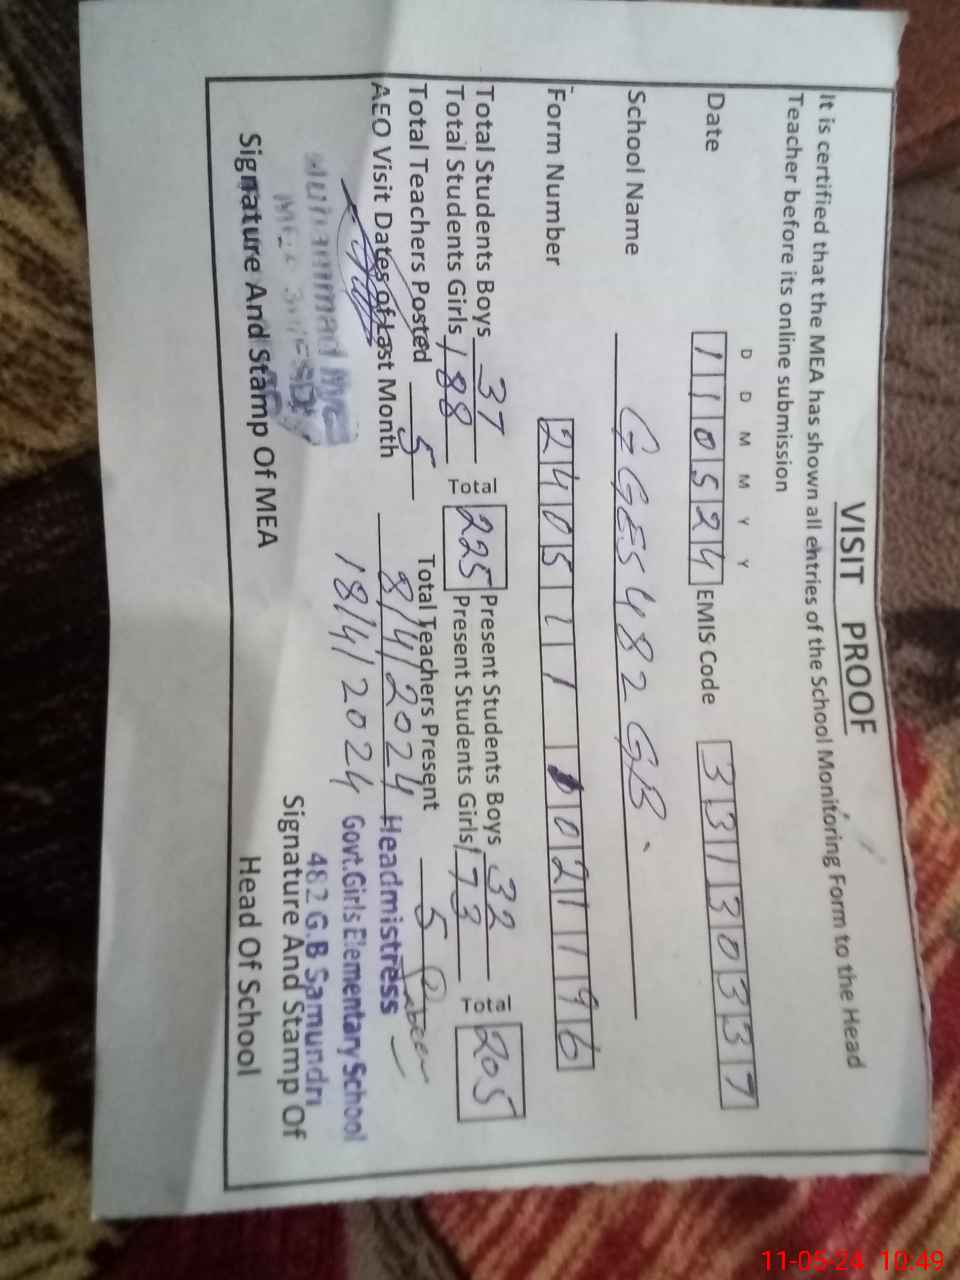 VISIT PROOF
It is certified that the MEA has shown all entries of the School Monitoring Form to the Head
Teacher before its online submission
D D M M Y Y
Date 110524 EMIS Code 33130337
School Name GGES 482 GB.
Form Number 2405 0211196
Total Students Boys 37 Total 225 Present Students Boys 32 Total 205
Total Students Girls 188 Present Students Girls 173
Total Teachers Posted 5 Total Teachers Present 5
AEO Visit Dates of Last Month 8/4/2024
18/4/2024
Headmistress
Govt.Girls Elementary School
482 G.B Samundri
Muhammad
Signature And Stamp Of MEA
Signature And Stamp Of
Head Of School
11-05-24 10:49